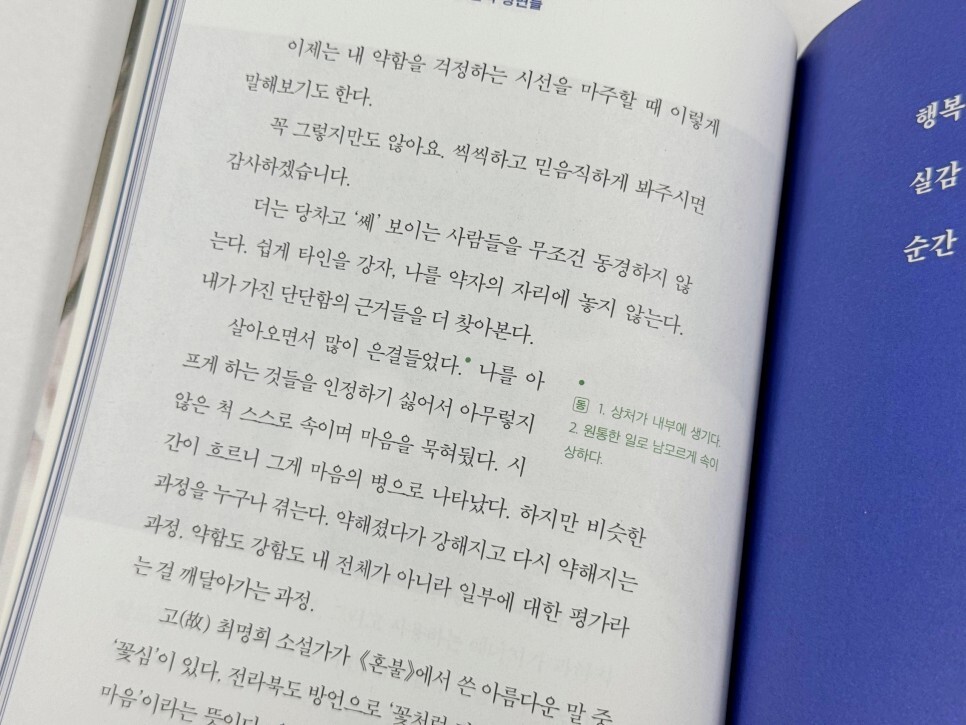 장면들
이제는 내 약함을 걱정하는 시선을 마주할 때 이렇게
말해보기도 한다.
꼭 그렇지만도 않아요. 씩씩하고 믿음직하게 봐주시면
감사하겠습니다.
더는 당차고 ‘쎄’ 보이는 사람들을 무조건 동경하지 않
는다. 쉽게 타인을 강자, 나를 약자의 자리에 놓지 않는다.
내가 가진 단단함의 근거들을 더 찾아본다.
살아오면서 많이 은결들었다.• 나를 아
프게 하는 것들을 인정하기 싫어서 아무렇지
않은 척 스스로 속이며 마음을 묵혀뒀다. 시
간이 흐르니 그게 마음의 병으로 나타났다. 하지만 비슷한
과정을 누구나 겪는다. 약해졌다가 강해지고 다시 약해지는
과정. 약함도 강함도 내 전체가 아니라 일부에 대한 평가라
는 걸 깨달아가는 과정.
고(故) 최명희 소설가가 《혼불》에서 쓴 아름다운 말 중
‘꽃심’이 있다. 전라북도 방언으로 ‘꽃처럼
마음’이라는 뜻이다.
•
동 1. 상처가 내부에 생기다.
2. 원통한 일로 남모르게 속이
상하다.
행복
실감
순간